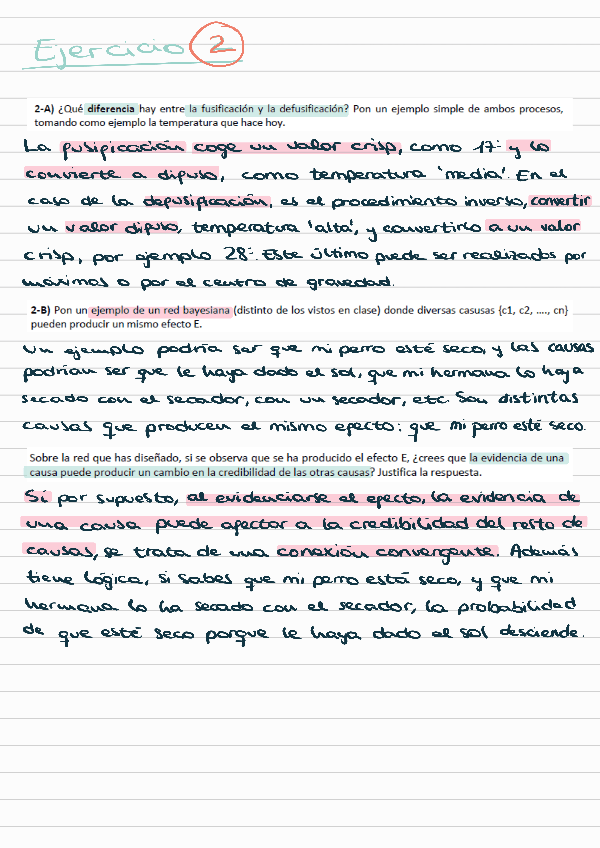 Ejercicio 2
2-A) ¿Qué diferencia hay entre la fusificación y la defusificación? Pon un ejemplo simple de ambos procesos,
tomando como ejemplo la temperatura que hace hoy.
La fusificación coge un valor crisp, como 17º y lo
convierte a difuso, como temperatura 'media'. En el
caso de la defusificación, es el procedimiento inverso, convertir
un valor difuso, temperatura 'alta', y convertirlo a un valor
crisp, por ejemplo 28º. Este último puede ser realizados por
máximos o por el centro de gravedad.
2-B) Pon un ejemplo de un red bayesiana (distinto de los vistos en clase) donde diversas casusas {c1, c2, …., cn}
pueden producir un mismo efecto E.
Un ejemplo podría ser que mi perro esté seco, y las causas
podrían ser que le haya dado el sol, que mi hermana lo haya
secado con el secador, con un secador, etc. Son distintas
causas que producen el mismo efecto: que mi perro esté seco.
Sobre la red que has diseñado, si se observa que se ha producido el efecto E, ¿crees que la evidencia de una
causa puede producir un cambio en la credibilidad de las otras causas? Justifica la respuesta.
Sí por supuesto, al evidenciarse el efecto, la evidencia de
una causa puede afectar a la credibilidad del resto de
causas, se trata de una conexión convergente. Además
tiene lógica, si sabes que mi perro está seco, y que mi
hermana lo ha secado con el secador, la probabilidad
de que esté seco porque le haya dado el sol desciende.